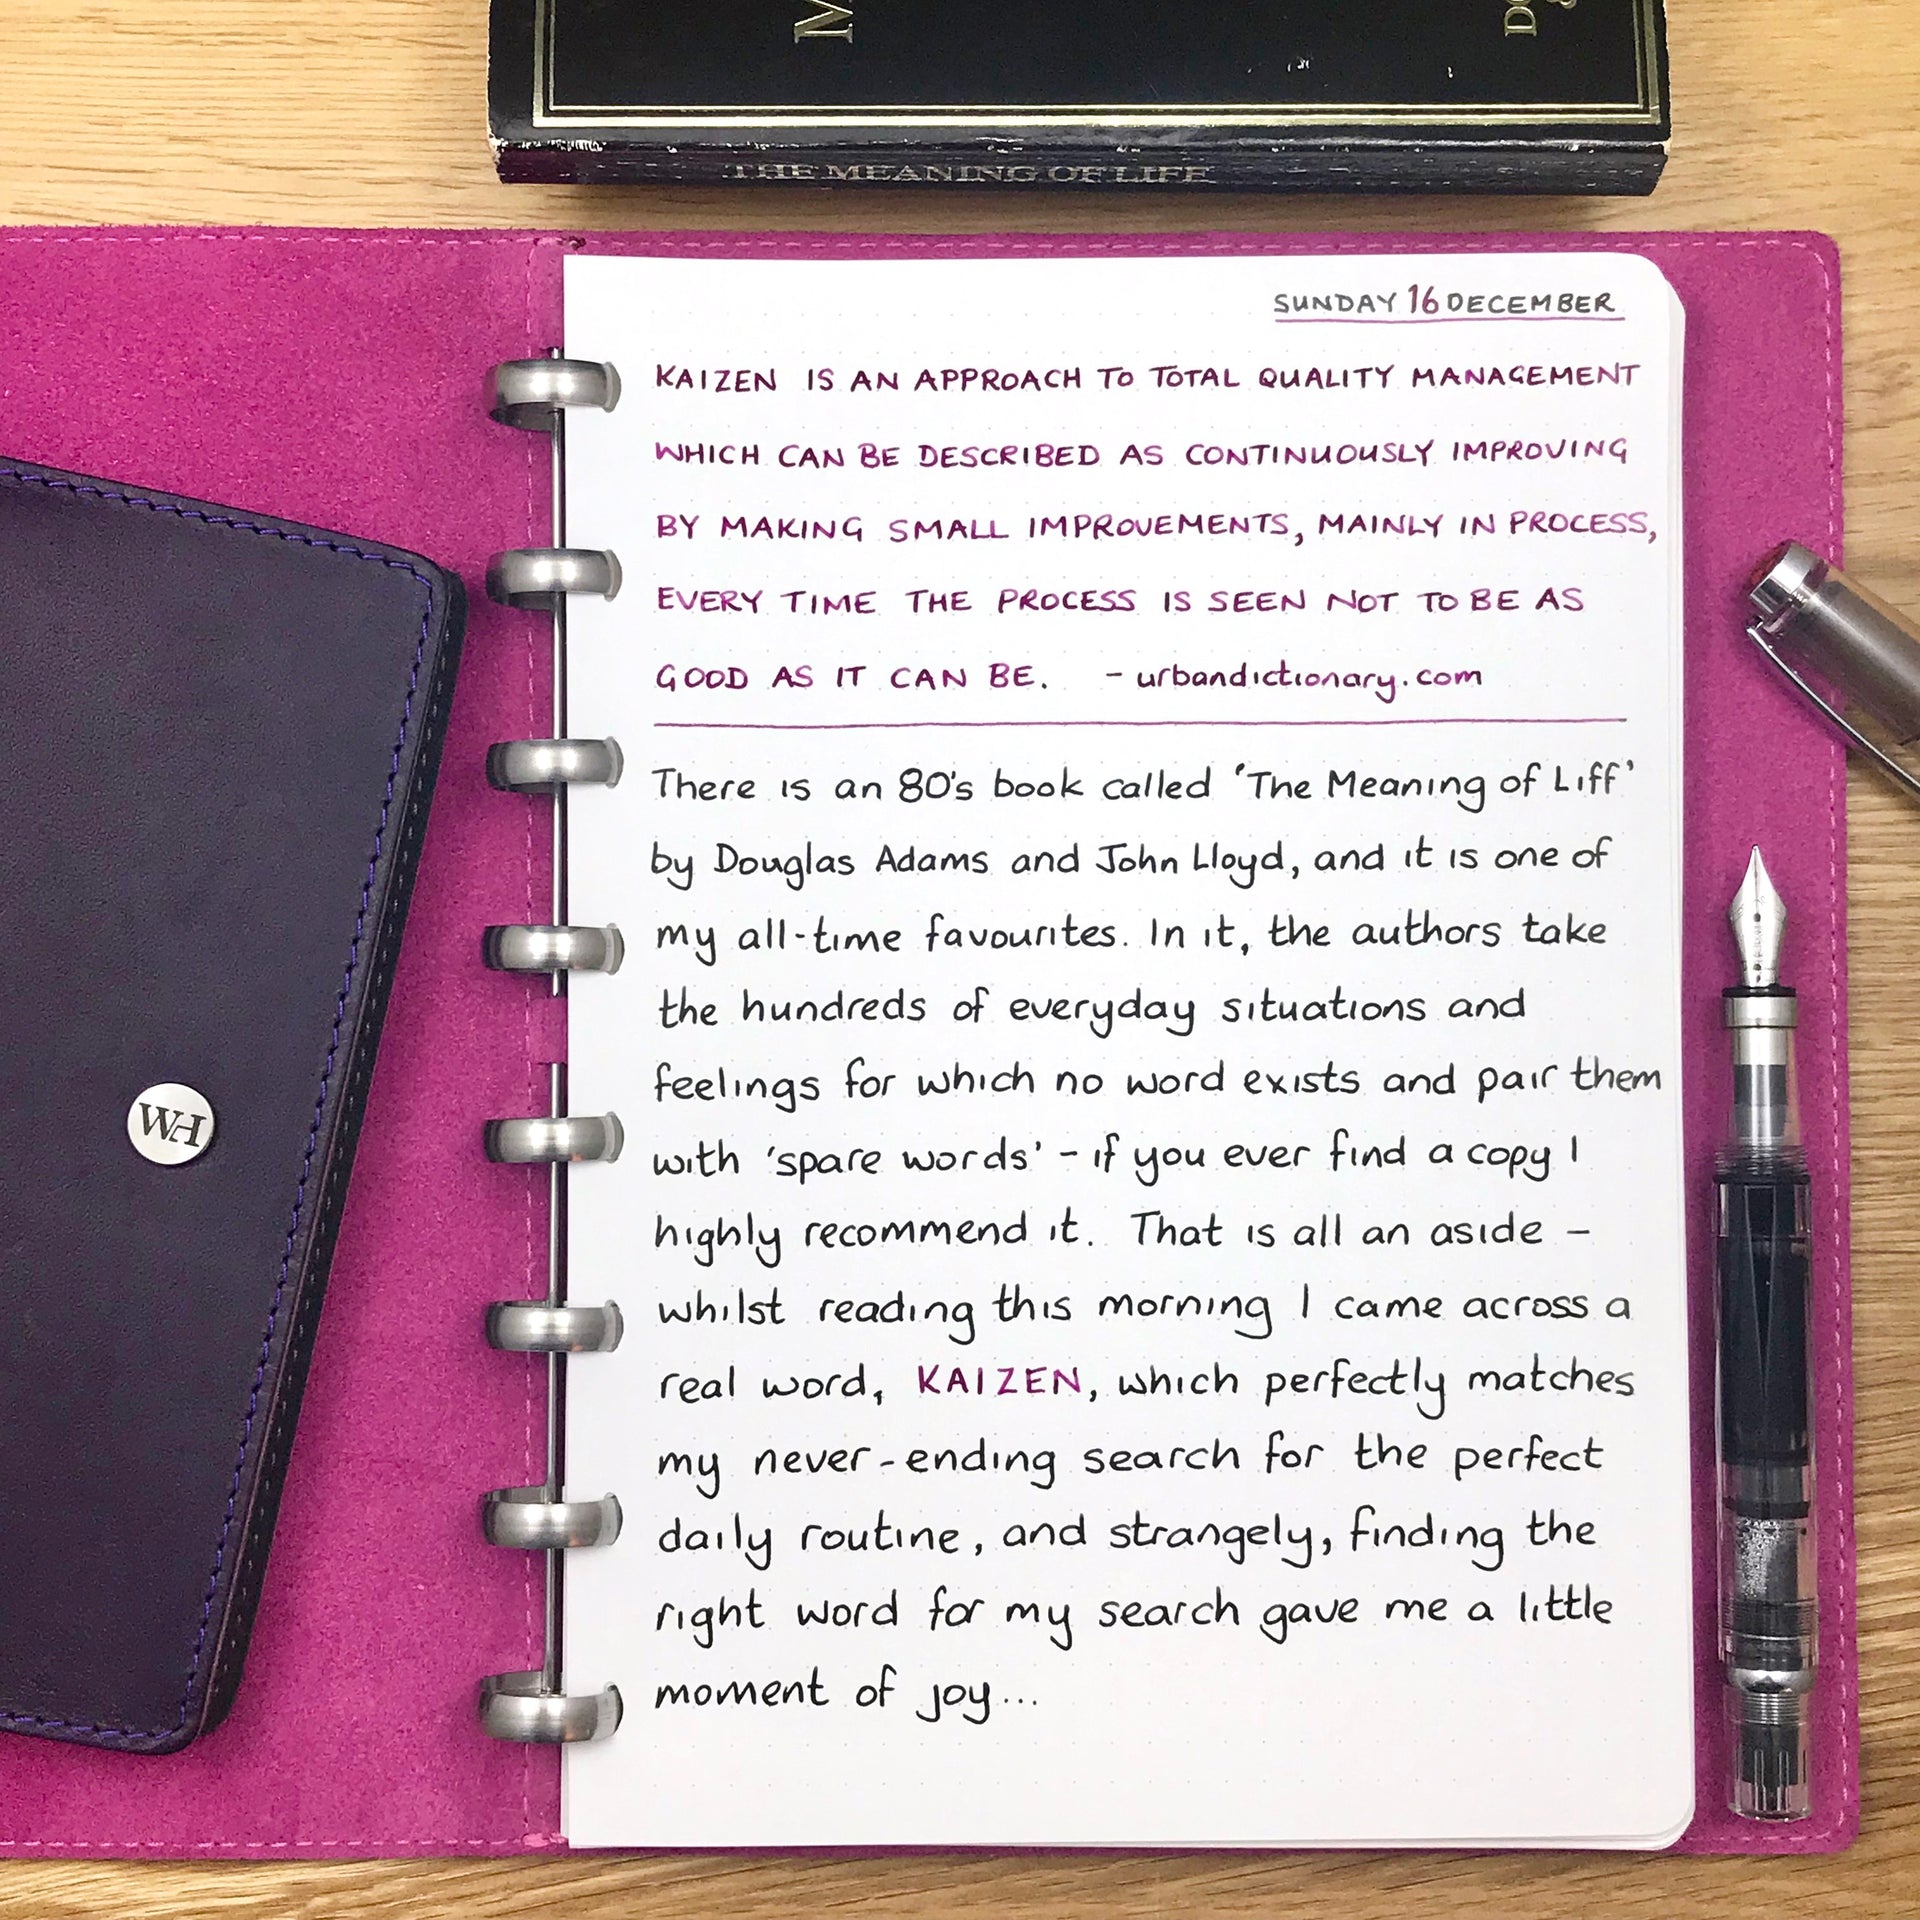 THE MEANING OF LIFF
SUNDAY 16 DECEMBER
KAIZEN IS AN APPROACH TO TOTAL QUALITY MANAGEMENT
WHICH CAN BE DESCRIBED AS CONTINUOUSLY IMPROVING
BY MAKING SMALL IMPROVEMENTS, MAINLY IN PROCESS,
EVERY TIME THE PROCESS IS SEEN NOT TO BE AS
GOOD AS IT CAN BE. - urbandictionary.com
There is an 80's book called 'The Meaning of Liff'
by Douglas Adams and John Lloyd, and it is one of
my all-time favourites. In it, the authors take
the hundreds of everyday situations and
feelings for which no word exists and pair them
with 'spare words' - if you ever find a copy I
highly recommend it. That is all an aside -
whilst reading this morning I came across a
real word, KAIZEN, which perfectly matches
my never-ending search for the perfect
daily routine, and strangely, finding the
right word for my search gave me a little
moment of joy...
WH